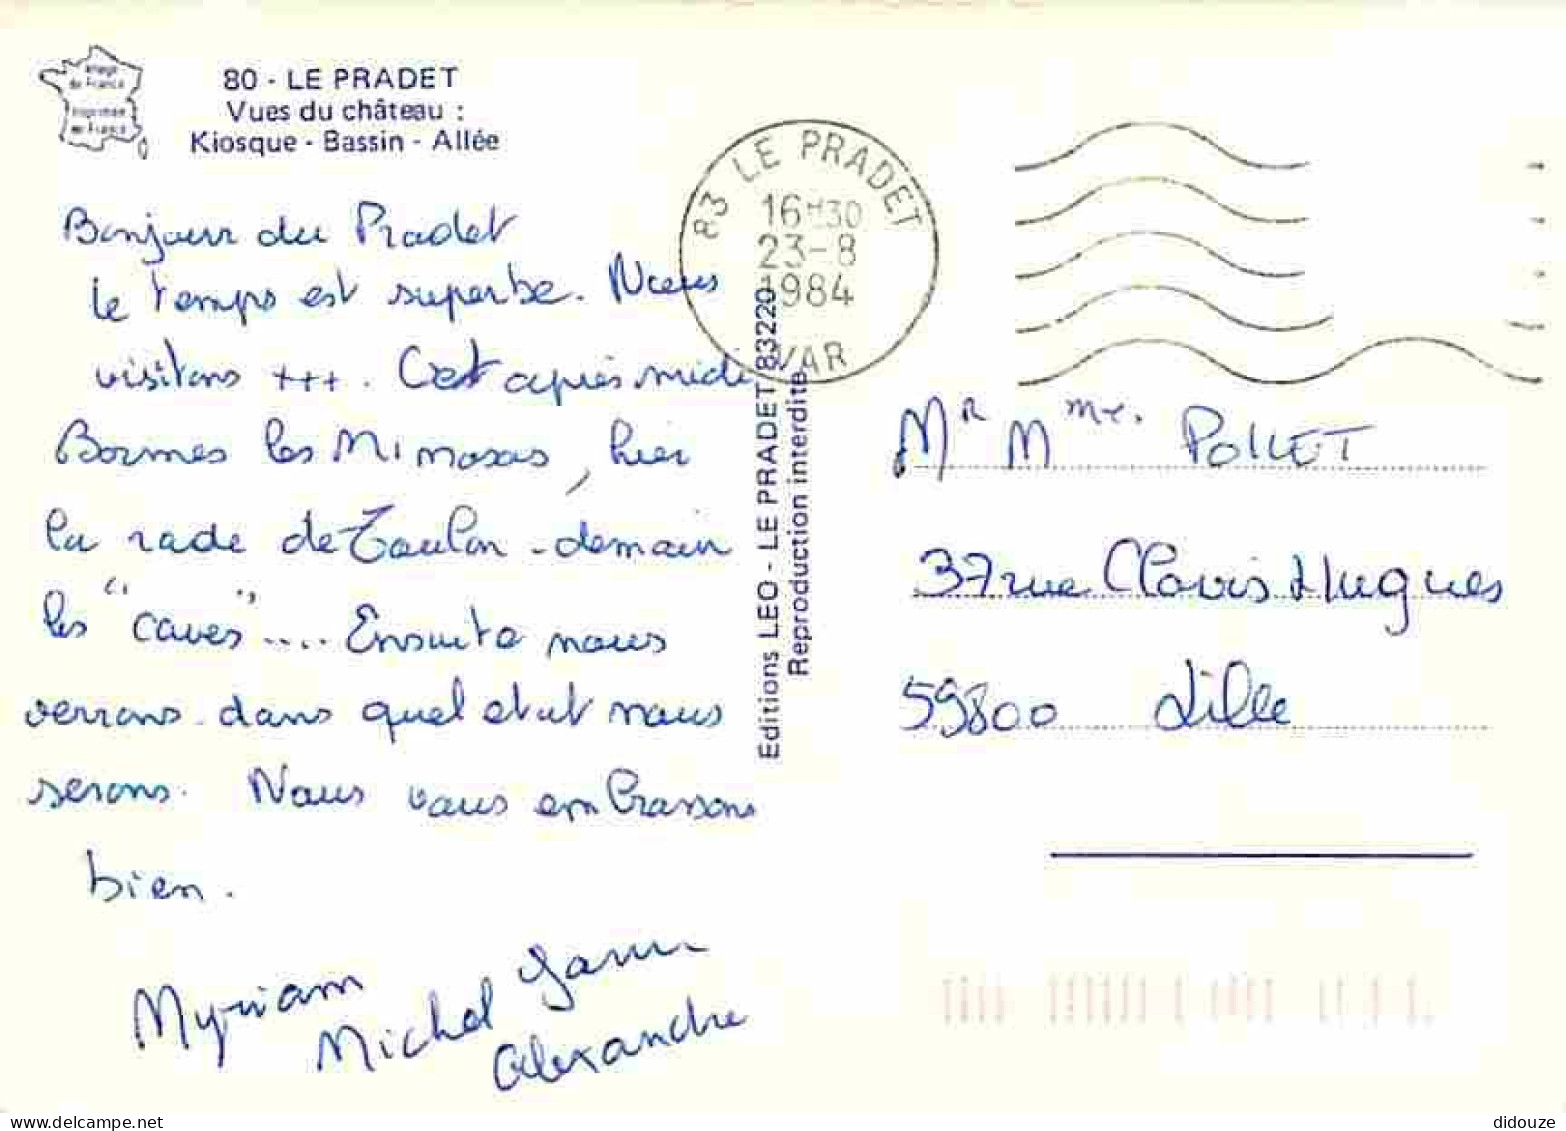 Image
de France
Imprimée
en France
80 - LE PRADET
Vues du château :
Kiosque - Bassin - Allée
83 LE PRADET
16H30
23-8
1984
VAR
Bonjour du Pradet
le temps est superbe. Nous
visitons +++. C'est après midi,
Bormes les Mimosas, hier
la rade de Toulon - demain
les "caves".... Ensuite nous
verrons dans quel etat nous
serons. Nous vous embrassons
bien.
Myriam
Michel Yann
Alexandre
Editions LEO - LE PRADET 83220
Reproduction interdite
Mr Mme. POLLET
37 rue Clovis Hugues
59800 Lille
didouze